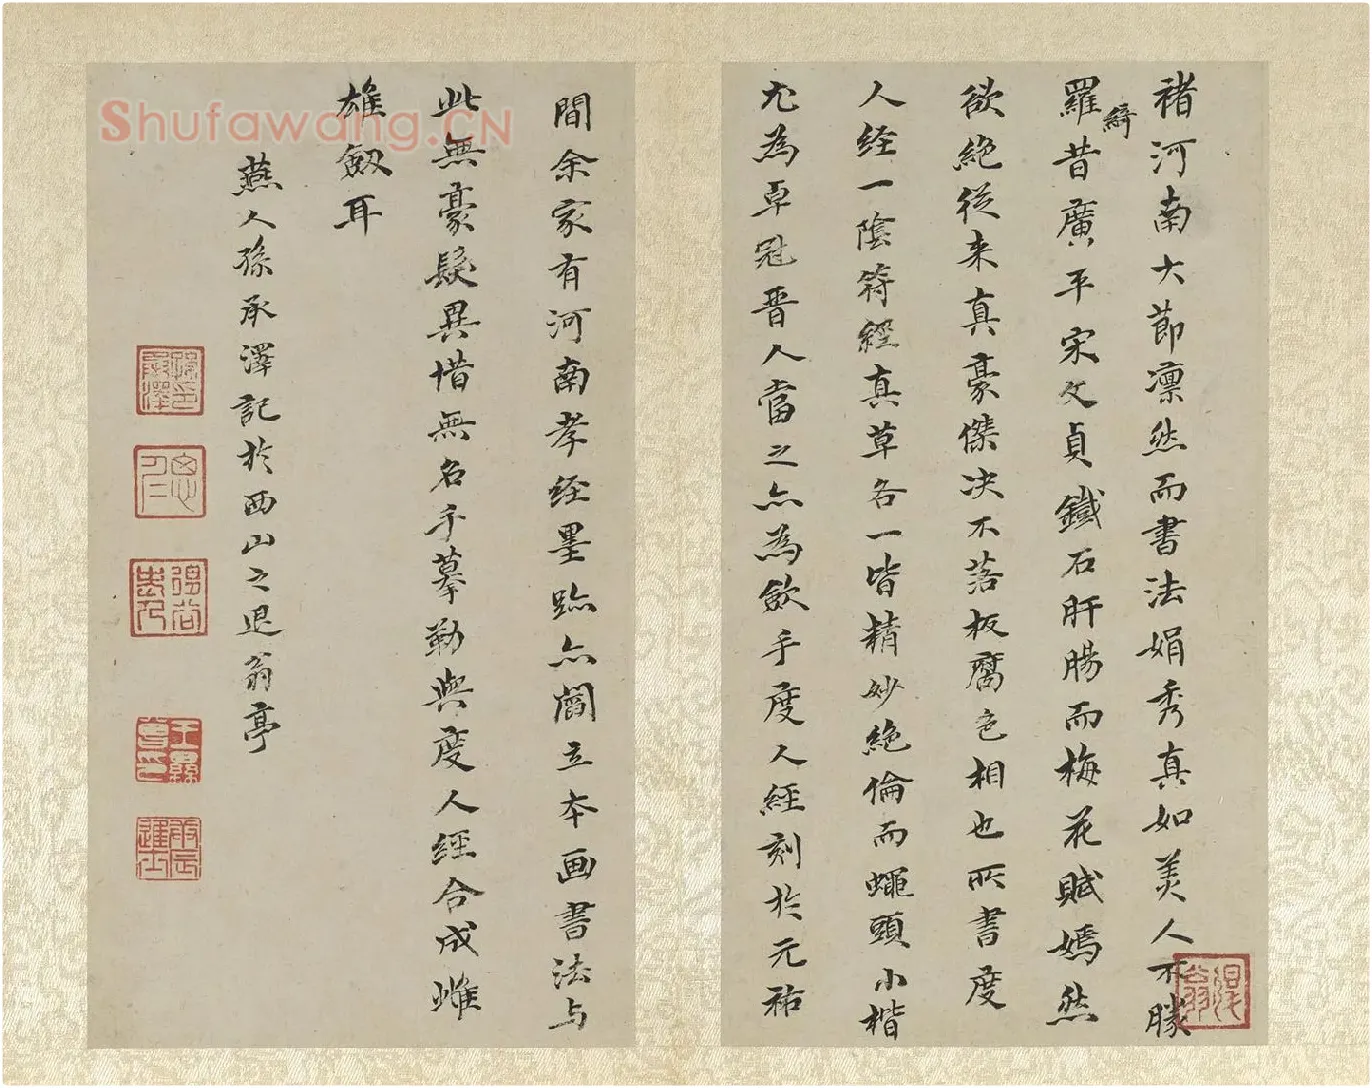 褚河南大節凛然而書法娟秀真如美人不勝
羅綺昔廣平宋文貞鐵石肝腸而梅花賦嫣然
欲絶從来真豪傑决不落板腐色相也所書度
人经一陰符經真草各一皆精妙絶倫而蠅頭小楷
尤為卓冠晋人當之亦為歛手度人經刻於元祐
間余家有河南孝经墨跡亦閻立本画書法与
此無豪髮異惜無名手摹勒與度人經合成雌
雄劔耳
燕人孫承澤記於西山之退翁亭
Shufawang.CN